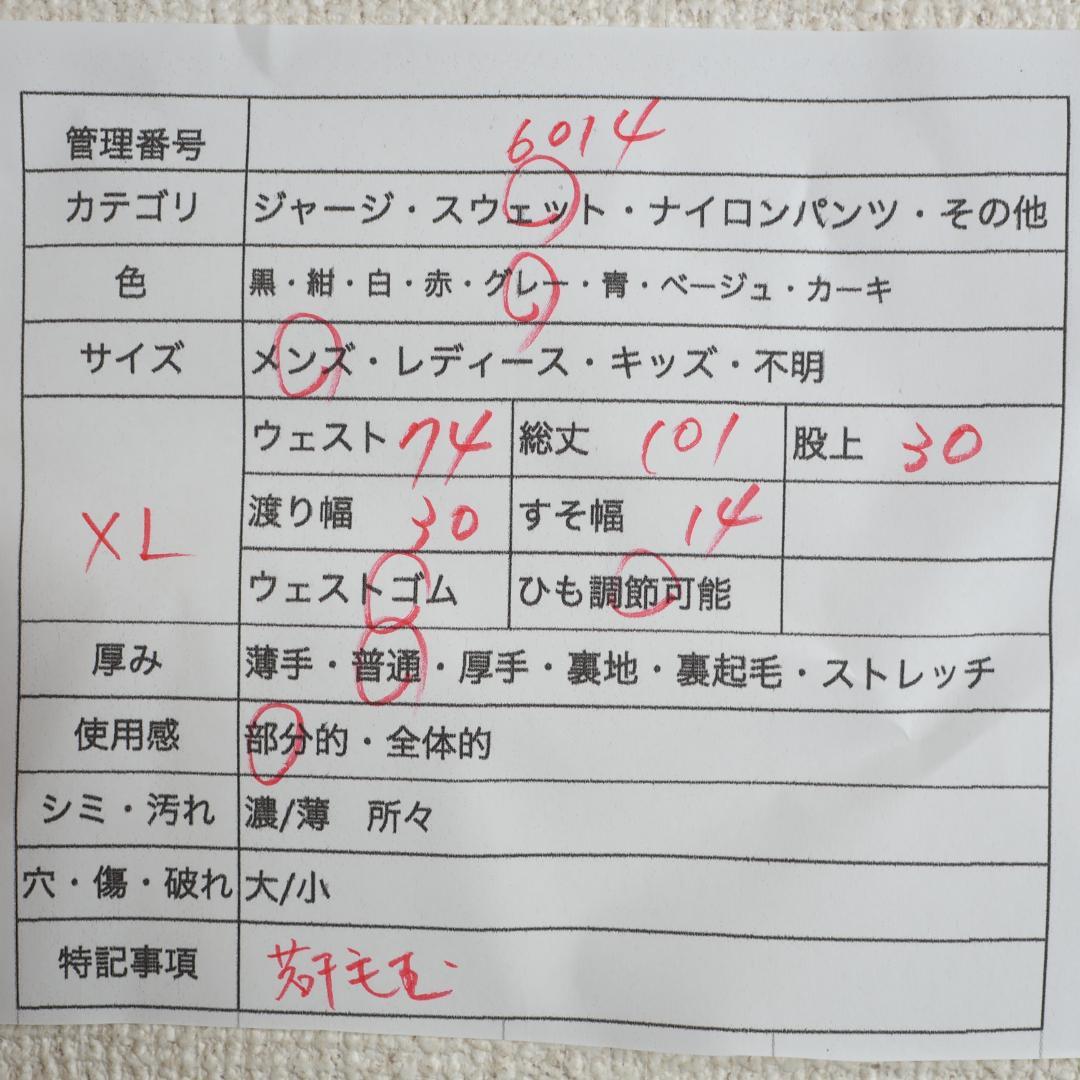 管理番号 6014
カテゴリ ジャージ・スウェット・ナイロンパンツ・その他
色 黒・紺・白・赤・グレー・青・ベージュ・カーキ
サイズ メンズ・レディース・キッズ・不明
ウェスト 74 総丈 101 股上 30
XL 渡り幅 30 すそ幅 14
ウェストゴム ひも調節可能
厚み 薄手・普通・厚手・裏地・裏起毛・ストレッチ
使用感 部分的・全体的
シミ・汚れ 濃/薄 所々
穴・傷・破れ 大/小
特記事項 若干毛玉